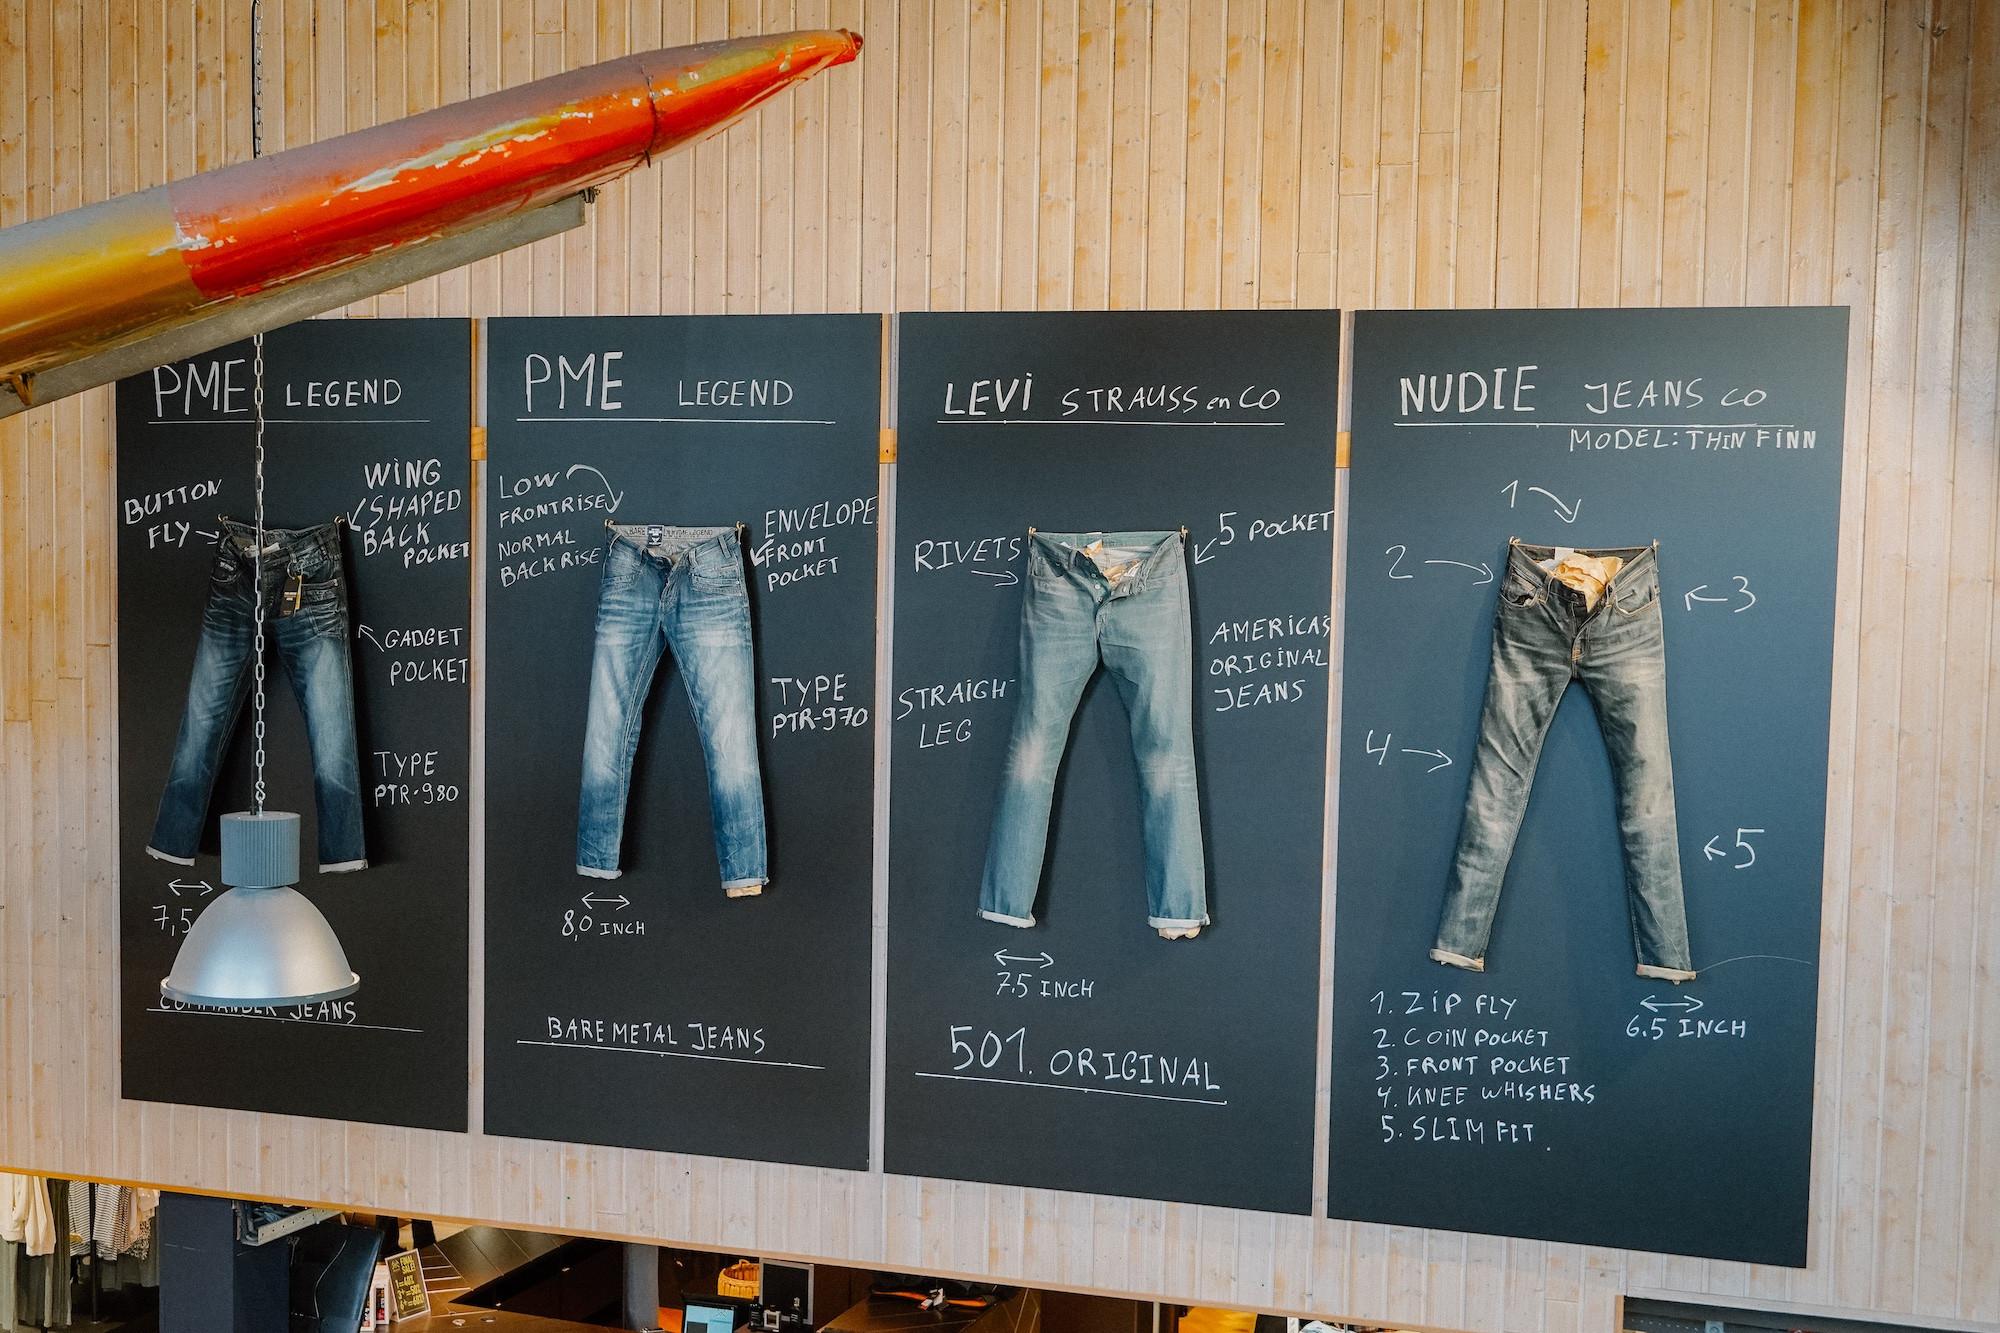 PME LEGEND
BUTTON
FLY
WING
SHAPED
BACK
POCKET
GADGET
POCKET
TYPE
PTR-980
7,5
COMMANDER JEANS
PME LEGEND
LOW
FRONTRISE
NORMAL
BACK RISE
ENVELOPE
FRONT
POCKET
TYPE
PTR-970
8,0 INCH
BARE METAL JEANS
LEVI STRAUSS en CO
RIVETS
5 POCKET
AMERICA'S
ORIGINAL
JEANS
STRAIGHT
LEG
7.5 INCH
501. ORIGINAL
NUDIE JEANS CO
MODEL: THIN FINN
1
2
3
4
5
6.5 INCH
1. ZIP FLY
2. COIN POCKET
3. FRONT POCKET
4. KNEE WHISHERS
5. SLIM FIT.
FINAL
SALE!